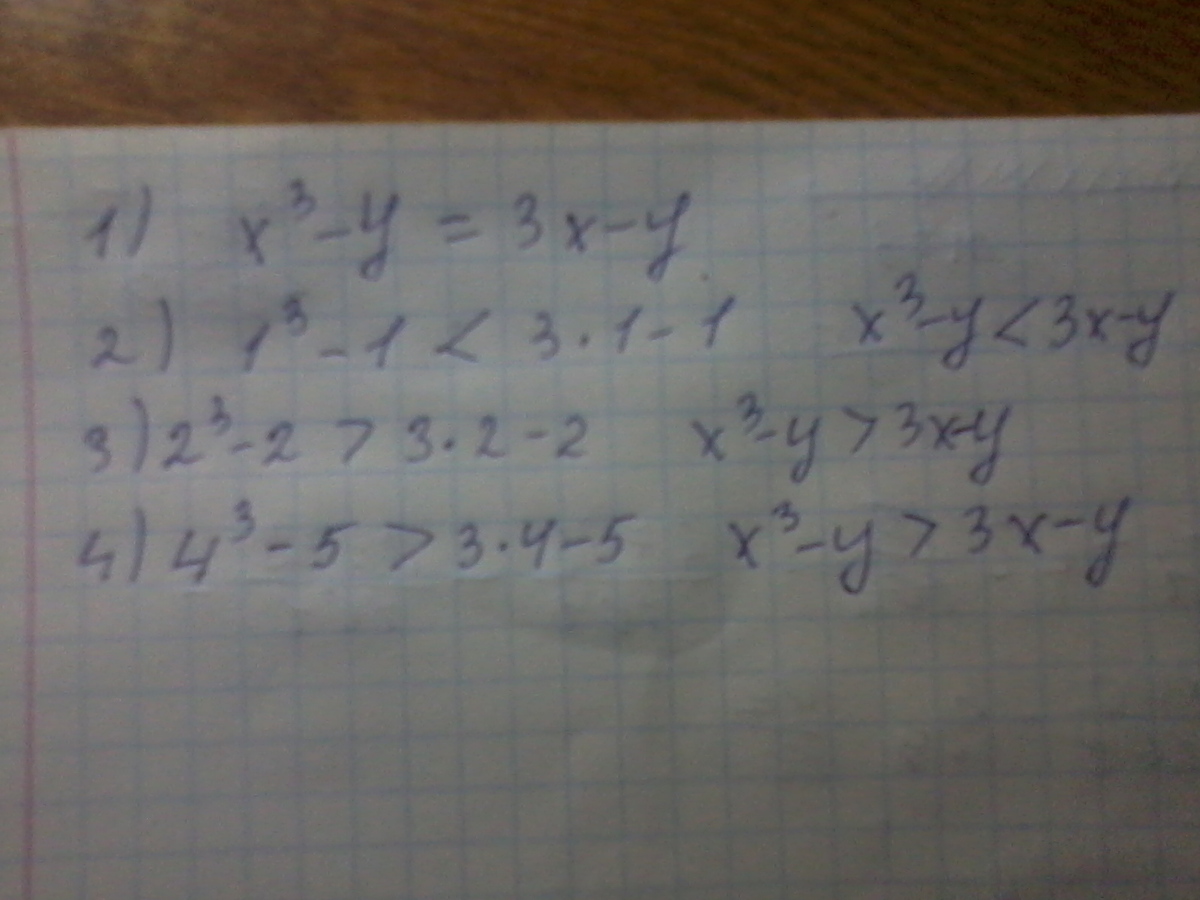 1) x³-y = 3x-y
2) 1³-1 < 3·1-1 x³-y<3x-y
3) 2³-2 > 3·2-2 x³-y>3x-y
4) 4³-5 > 3·4-5 x³-y > 3x-y